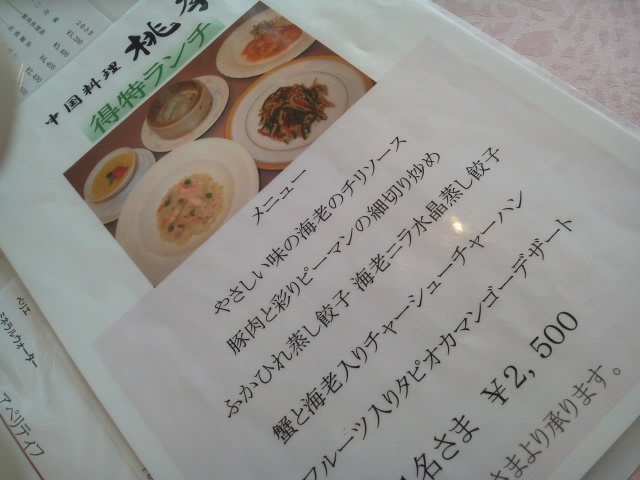 中国料理 桃
得特ランチ
メニュー
やさしい味の海老のチリソース
豚肉と彩りピーマンの細切り炒め
ふかひれ蒸し餃子 海老ニラ水晶蒸し餃子
蟹と海老入りチャーシューチャーハン
フルーツ入りタピオカマンゴーデザート
名さま ¥2,500
さまより承ります。
ペリエ
ミネラルウォーター
アペリティフ